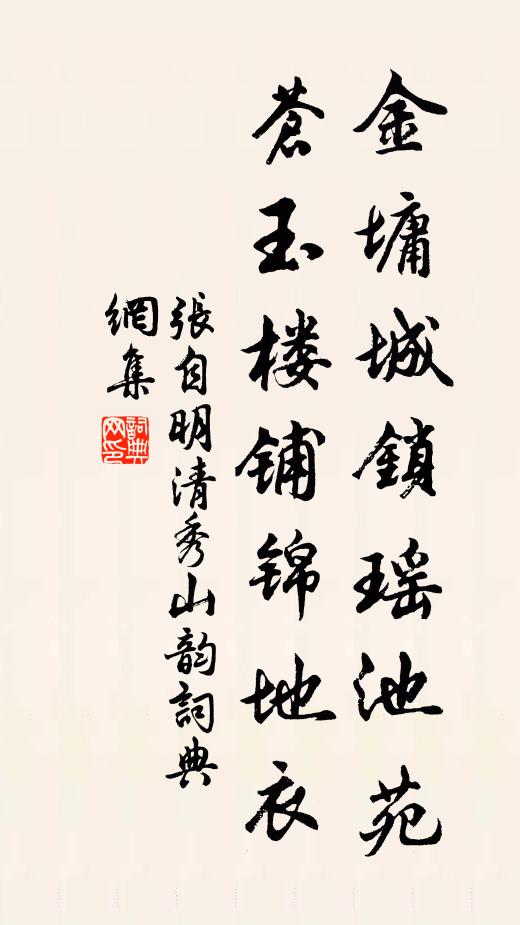 金墉城鎖瑶池苑
蒼玉楼铺锦地衣
張自明清秀山韵詞典
網集
詞典
网印